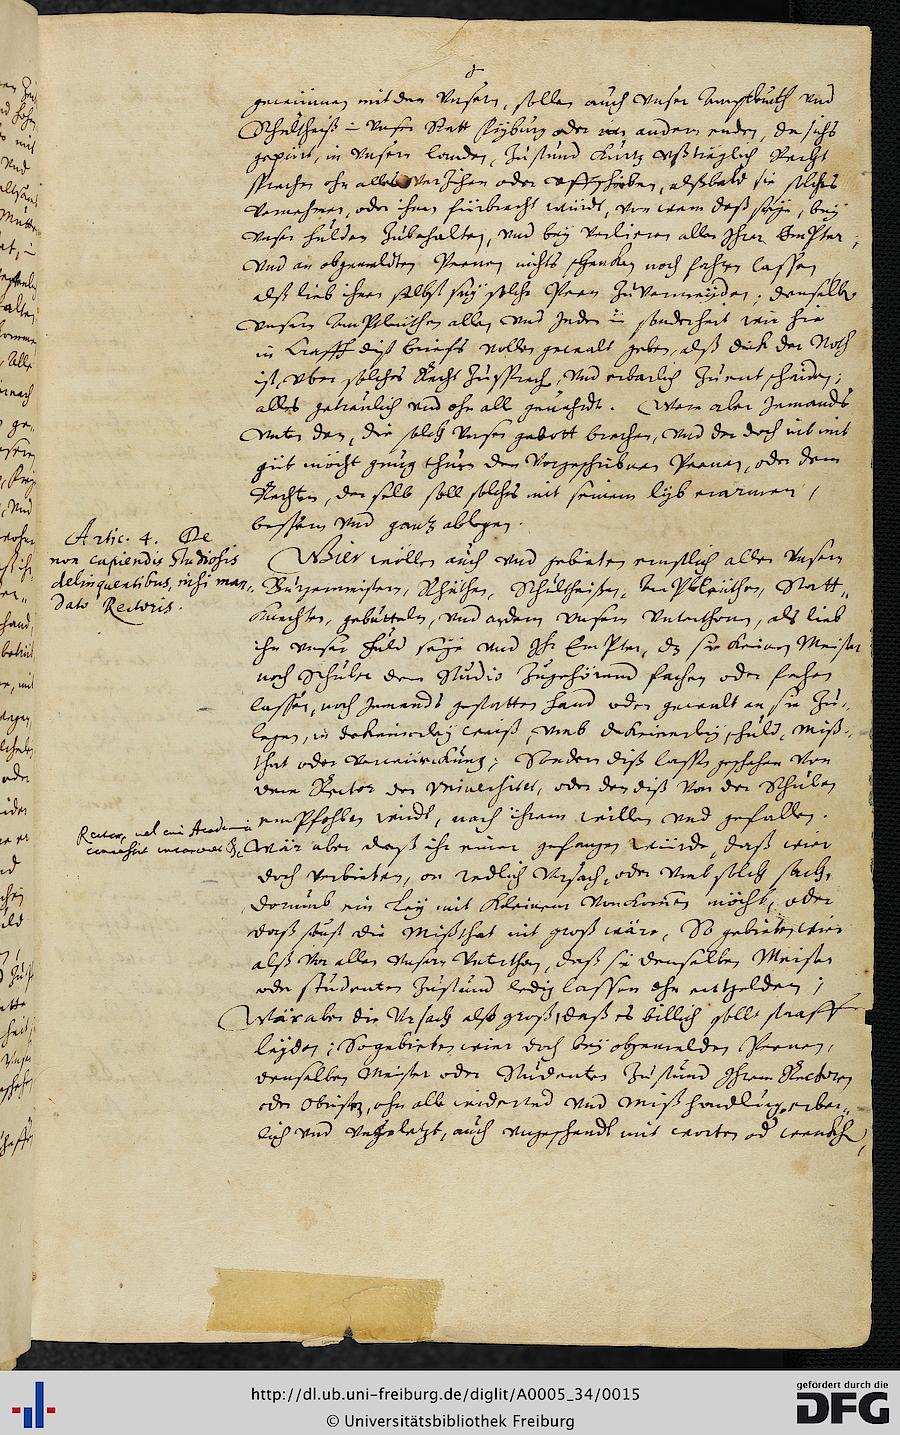 gewünnen mit den Unsern, sollen auch unser Amptleuth und
Schultheiß in unser Statt Fryburg oder andern enden, da sichs
gepürt, in unsern landen, zustund kurtz ußträglich Recht
sprechen ohn alles verziehen oder uffschieben, alßbald sie solches
vernehmen, oder ihnen fürbracht würdt, von wem daß seye, bey
unser hulden zubehalten, und bey verlieren aller Ihrer Empter,
und an obgemeldten Peenen nichts schencken noch fahren lassen,
alß lieb ihnen selbst sey solche Peen zuvermeyden; denselben
unsern Amptleuthen allen und Jeden in sonderheit wir hie
in Crafft diß briefs vollen gewalt geben, alß dick des Noth
ist, uber solches Recht zusprech, und erbarlich zu entscheiden;
alles getreulich und ohn all gevehrdt. Wer aber Jemands
unter den, die solch unser gebott brechen, und der doch nit mit
gut möcht gnug thuen den Vorgeschribnen Peenen, oder dem
Rechten, der selb soll solches mit seinem lyb erarnen,
bessern und gantz ablegen.
Artic. 4. De
non capiendis Studiosis
delinquentibus, nisi man-
dato Rectoris.
Wier wöllen auch und gebieten ernstlich allen unsern
Burgermeistern, Rhäthen, Schultheißen, Amptleuthen, Statt-
knechten, gebütteln, und andern unsern Unterthonen, als lieb
ihn unser huld seye und Ihr Empter, dz sie keinen Meister
noch Schuler dem Studio zugehörend fachen oder fachen
lassen, noch Jemands gestatten hand oder gewalt an sie zu-
legen, in dekeinerley weiß, umb dekeinerley schuld, miß-
that oder verwürckung; Sonder diß lassen geschehen von
dem Rector der Universitet, oder den diß von der Schulen
empfohlen würdt, nach ihrem willen und gefallen.
Rector, vel cui Academia
Wär aber daß ihr einer gefangen würde, daß wier
doch verbieten, on redlich Ursach, oder umb solch sach,
dorumb ein Ley mit kleinem vonkomen möcht, oder
daß sunst die mißthat nit groß wäre, So gebieten wier
alß vor allen unsern Unterthonen, daß sie denselben Meister
oder studenten zustund ledig lassen ohn entgelden;
Wär aber die Ursach also groß, daß es billich sollt straff
leyden; So gebieten wier doch bey obgemelden Peenen,
denselben Meister oder Studenten zu stund Ihrem Rectoren
oder Obristen, ohn alle widerred und mißhandlung, erber-
lich und unverletzt, auch ungeschendt mit worten od wercken,
http://dl.ub.uni-freiburg.de/diglit/A0005_34/0015
© Universitätsbibliothek Freiburg
gefördert durch die
DFG